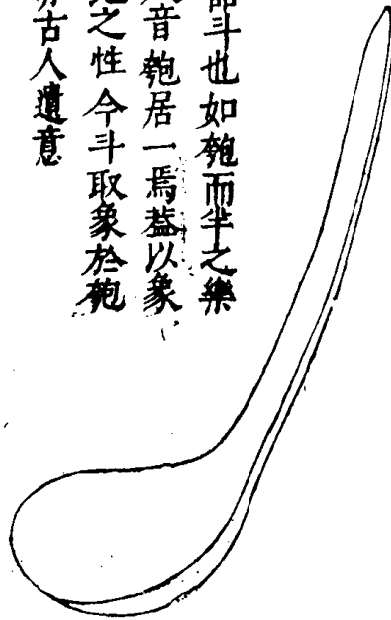 斗也如匏而半之樂
音匏居一焉葢以象
之性今斗取象於匏
古人遺意